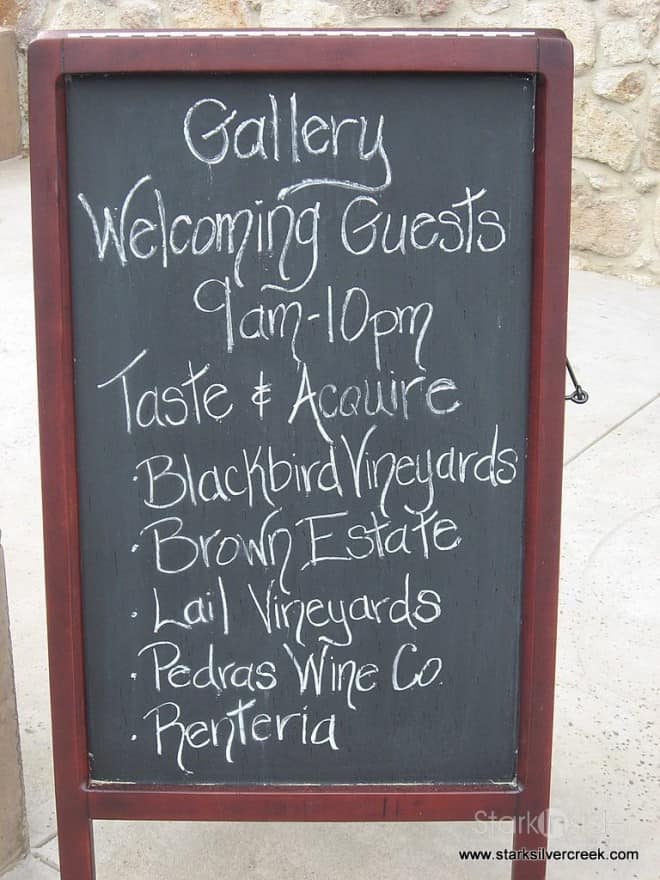 Gallery
Welcoming Guests
9am-10pm
Taste & Acquire
·Blackbird Vineyards
·Brown Estate
·Lail Vineyards
·Pedras Wine Co.
·Renteria
www.starksilvercreek.com